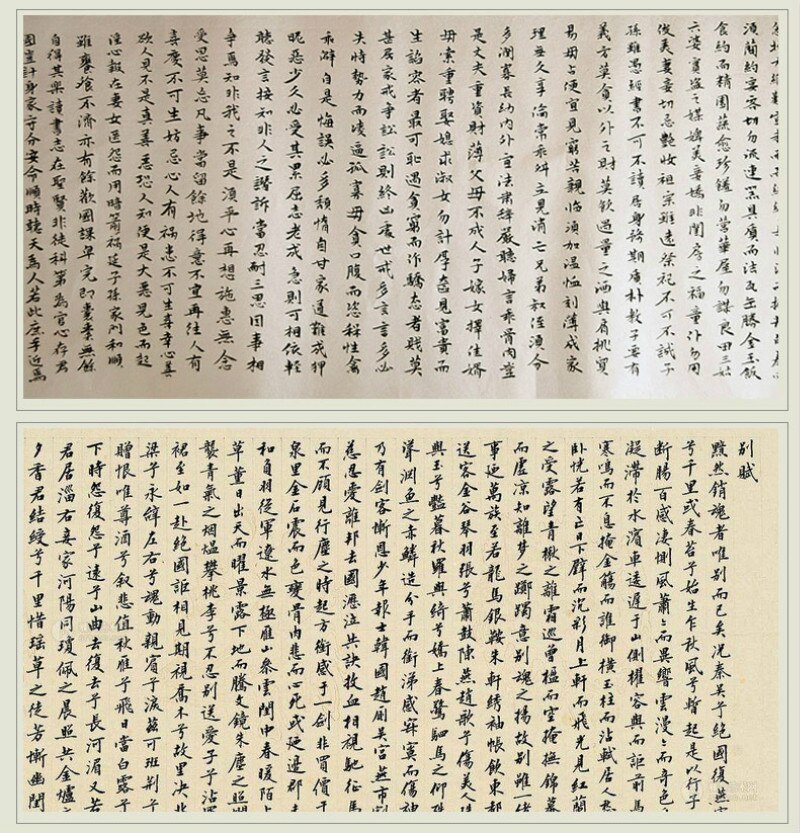 須簡約宴客切勿流連器具質而潔瓦缶勝金玉飯
食約而精園蔬愈珍饈勿營華屋勿謀良田三姑
六婆實盜之媒婢美妾嬌非閨房之福童仆勿用
俊美妻妾切忌艷妝祖宗雖遠祭祀不可不誠子
孫雖愚經書不可不讀居身務期質朴教子要有
義方莫貪以外之財莫飲過量之酒與肩挑貿
易毋占便宜見窮苦親臨須加溫恤刻薄成家
理無久享倫常乖舛立見消亡兄弟叔侄須分
多潤寡長幼內外宜法肅辭嚴聽婦言乖骨肉豈
是丈夫重資財薄父母不成人子嫁女擇佳婿
毋索重聘娶媳求淑女勿計厚奩見富貴而
生諂容者最可恥遇貧窮而作驕態者賤莫
甚居家戒爭訟訟則終凶處世戒多言言多必
失恃勢力而凌逼孤寡毋貪口腹而恣殺牲禽
乖僻自是悔誤必多頹惰自甘家道難成狎
昵惡少久必受其累屈志老成急則可相依輕
聽發言按知非人之譖訴當忍耐三思因事相
爭焉知非我之不是須平心再想施惠無念
受恩莫忘凡事當留餘地得意不宜再往人有
喜慶不可生妒忌心人有禍患不可生喜幸心善
欲人見不是真善惡恐人知便是大惡見色而起
淫心報在妻女匿怨而用暗箭禍延子孫家門和順
雖饔飧不濟亦有餘歡國課早完即囊橐無餘
自得其樂讀書志在聖賢非徒科第為官心存君
國豈計身家守分安命順時聽天為人若此庶乎近焉
別賦
黯然銷魂者唯別而已矣況秦吳兮絕國復燕宋
兮千里或春苔兮始生乍秋風兮蹔起是以行子
斷腸百感淒惻風蕭〻而異響雲漫〻而奇色
凝滯於水濱車逶遲于山側櫂容與而詎前馬
寒鳴而不息掩金觴而誰御橫玉柱而沾軾居人愁
臥怳若有亡日下壁而沉彩月上軒而飛光見紅蘭
之受露望青楸之離霜巡曾楹而空掩撫錦幕
而虛涼知離夢之躑躅意別魂之揚故別雖一緒
事迺萬族至若龍馬銀鞍朱軒繡袖帳飲東都
送客金谷琴羽張兮簫鼓陳燕趙歌兮傷美人
與玉兮艷暮秋羅與綺兮嬌上春驚駟馬之仰秣
聳淵魚之赤鱗造分手而銜涕感寂寞而傷神
乃有劍客慚恩少年報士韓國趙廁吳宮燕市割
慈忍愛離邦去國瀝泣共訣抆血相視馳征馬
而不顧見行塵之時起方銜感于一劍非買價于
泉里金石震而色變骨肉悲而心死或迺邊郡
和負羽從軍遼水無極雁山參雲閨中春暖陌上
草薰日出天而曜景露下地而騰文鏡朱塵之照
襲青氣之烟熅攀桃李兮不忍別送愛子兮沾羅
裙至如一赴絕國詎相見期視喬木兮故里決北
梁兮永辭左右兮魂動親賓兮淚滋可班荊兮
贈恨唯尊酒兮敘悲值秋雁兮飛日當白露兮
下時怨復怨兮遠山曲去復去兮長河湄又若
君居淄右妾家河陽同瓊佩之晨照共金爐之
夕香君結綬兮千里惜瑤草之徒芳慚幽閨